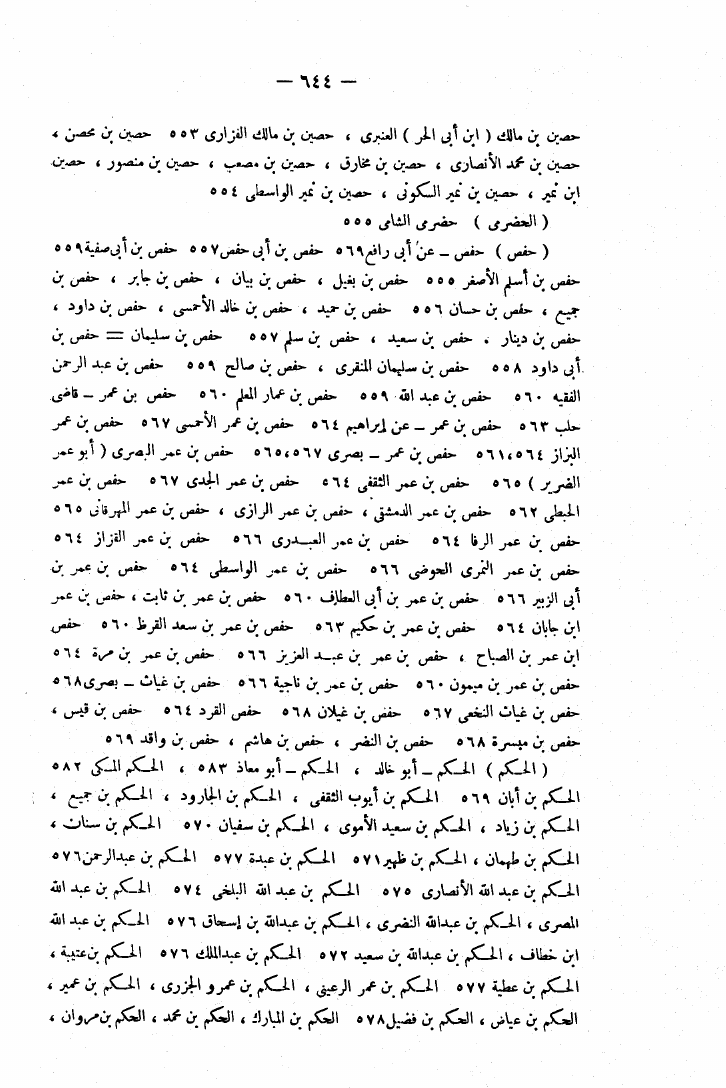 — ٦٤٤ —
حصين بن مالك ( ابن أبى الحر ) العنبرى ، حصين بن مالك الفزارى ٥٥٣ حصين بن محصن ،
حصين بن محمد الأنصارى ، حصين بن مخارق ، حصين بن مصعب ، حصين بن منصور ، حصين
ابن نمير ، حصين بن نمير السكونى ، حصين بن نمير الواسطى ٥٥٤
( الحضرمى ) حضرمى الشامى ٥٥٥
( حفص ) حفص – عن أبى رافع ٥٦٩ حفص بن أبى حفص ٥٥٧ حفص بن أبى صفية ٥٥٩
حفص بن أسلم الأصفر ٥٥٥ حفص بن بغيل ، حفص بن بيان ، حفص بن جابر ، حفص بن
جميع ، حفص بن حسان ٥٥٦ حفص بن حميد ، حفص بن خالد الأحمسى ، حفص بن داود ،
حفص بن دينار ، حفص بن سعيد ، حفص بن سلم ٥٥٧ حفص بن سليمان = حفص بن
أبى داود ٥٥٨ حفص بن سليمان المنقرى ، حفص بن صالح ٥٥٩ حفص بن عبد الرحمن
الفقيه ٥٦٠ حفص بن عبد الله ٥٥٩ حفص بن عمار المعلم ٥٦٠ حفص بن عمر – قاضى
حلب ٥٦٣ حفص بن عمر – عن إبراهيم ٥٦٤ حفص بن عمر الأحمسى ٥٦٧ حفص بن عمر
البزاز ٥٦١،٥٦٤ حفص بن عمر – بصرى ٥٦٥،٥٦٧ حفص بن عمر البصرى ( أبو عمر
الضرير ) ٥٦٥ حفص بن عمر الثقفى ٥٦٤ حفص بن عمر الجدى ٥٦٧ حفص بن عمر
الحبطى ٥٦٢ حفص بن عمر الدمشقى ، حفص بن عمر الرازى ، حفص بن عمر المهرقانى ٥٦٥
حفص بن عمر الرفا ٥٦٤ حفص بن عمر العبدرى ٥٦٦ حفص بن عمر القزاز ٥٦٤
حفص بن عمر النمرى الحوضى ٥٦٦ حفص بن عمر الواسطى ٥٦٤ حفص بن عمر بن
أبى الزبير ٥٦٦ حفص بن عمر بن أبى العطاف ٥٦٠ حفص بن عمر بن ثابت ، حفص بن عمر
ابن جابان ٥٦٤ حفص بن عمر بن حكيم ٥٦٣ حفص بن عمر بن سعد القرظ ٥٦٠ حفص
ابن عمر بن الصباح ، حفص بن عمر بن عبد العزيز ٥٦٦ حفص بن عمر بن مرة ٥٦٤
حفص بن عمر بن ميمون ٥٦٠ حفص بن عمر بن ناجية ٥٦٦ حفص بن غياث – بصرى ٥٦٨
حفص بن غياث النخعى ٥٦٧ حفص بن غيلان ٥٦٨ حفص القرد ٥٦٤ حفص بن قيس ،
حفص بن ميسرة ٥٦٨ حفص بن النضر ، حفص بن هاشم ، حفص بن واقد ٥٦٩
( الحكم ) الحكم – أبو خالد ، الحكم – أبو معاذ ٥٨٣ ، الحكم المكى ٥٨٢
الحكم بن أبان ٥٦٩ الحكم بن أيوب الثقفى ، الحكم بن الجارود ، الحكم بن جميع ،
الحكم بن زياد ، الحكم بن سعيد الأموى ، الحكم بن سفيان ٥٧٠ الحكم بن سنان ،
الحكم بن طهمان ، الحكم بن ظهير ٥٧١ الحكم بن عبدة ٥٧٧ الحكم بن عبدالرحمن ٥٧٦
الحكم بن عبد الله الأنصارى ٥٧٥ الحكم بن عبد الله البلخى ٥٧٤ الحكم بن عبد الله
المصرى ، الحكم بن عبدالله النضرى ، الحكم بن عبدالله بن إسحاق ٥٧٦ الحكم بن عبد الله
ابن خطاف ، الحكم بن عبدالله بن سعيد ٥٧٢ الحكم بن عبدالملك ٥٧٦ الحكم بن عتيبة ،
الحكم بن عطية ٥٧٧ الحكم بن عمر الرعينى ، الحكم بن عمرو الجزرى ، الحكم بن عمير ،
الحكم بن عياض ، الحكم بن فضيل ٥٧٨ الحكم بن المبارك ، الحكم بن محمد ، الحكم بن مروان ،